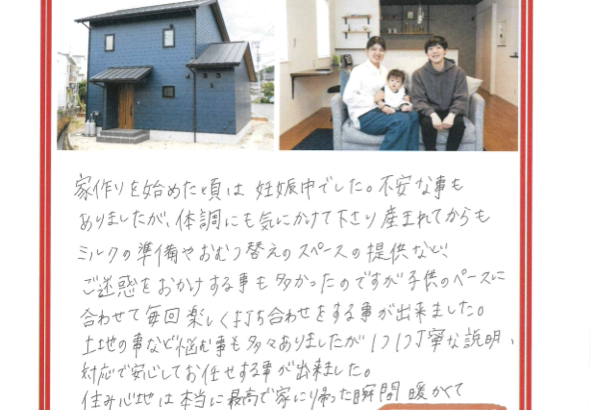 家作りを始めた頃は 妊娠中でした。不安な事も
ありましたが、体調にも気にかけて下さり 産まれてからも
ミルクの準備やおむつ替えのスペースの提供など、
ご迷惑をおかけする事も多かったのですが子供のペースに
合わせて毎回楽しく打ち合わせをする事が出来ました。
土地の事など悩む事も多々ありましたが 1つ1つ丁寧な説明、
対応で安心してお任せする事が出来ました。
住み心地は本当に最高で家に帰った瞬間 暖かくて